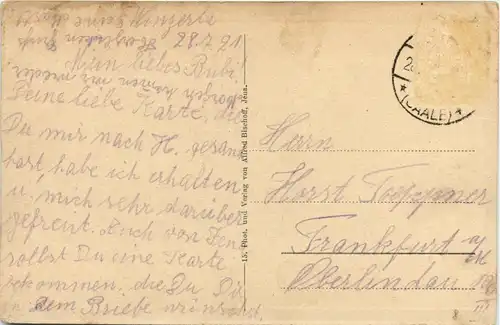 28.7.21
Mein liebes Bubi!
Deine liebe Karte, die
Du mir nach H. gesandt
hast, habe ich erhalten
u. mich sehr darüber
gefreut. Auch von Jena
sollst Du eine Karte
bekommen, die Du Dir
in dem Briefe wünschst.
15. Phot. und Verlag von Alfred Bischoff, Jena.
(SAALE)
Herrn
Horst Toeppner
Frankfurt a/M
Oberlindau
III